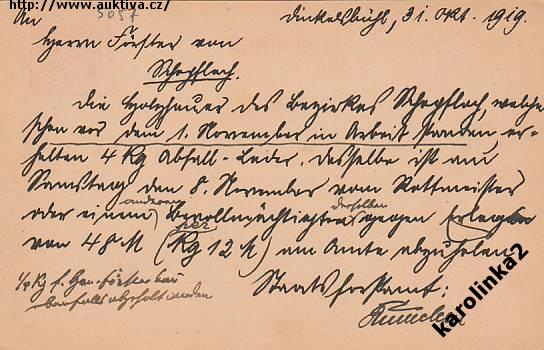 http://www.auktiva.cz/
5057
An
Dinkelsbühl, 31. Okt. 1919.
Herrn Förster von
Schopfloch.
Die Holzhauer des Bezirkes Schopfloch, welche
schon vor dem 1. November in Arbeit standen, er-
halten 4 kg Abfall-Leder. Dasselbe ist am
Samstag den 8. November vom Rottmeister
oder einem anderen Bevollmächtigten derselben gegen Erlag
von 48 M (per kg 12 M) am Amte abzuholen
1/2 kg f. Hrn. Förster kann
ebenfalls abgeholt werden
Staatsforstamt:
karolinka2